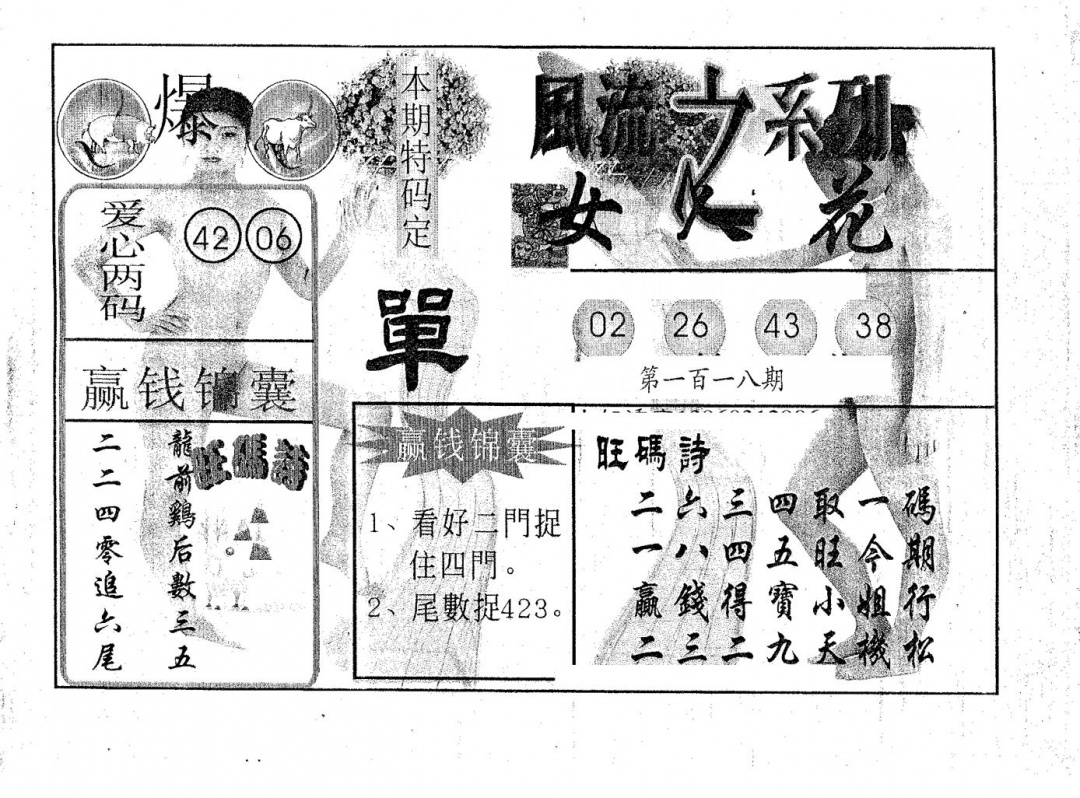 爆
爱心两码
42 06
赢钱锦囊
龍前鷄后數三五
二二四零追六尾
旺碼詩
本期特码定
單
赢钱锦囊
1、看好二門捉
住四門。
2、尾數捉423。
風流之系列
女人花
02 26 43 38
第一百一八期
旺碼詩
二六三四取一碼
一八四五旺今期
贏錢得寶小姐行
二三二九天機松